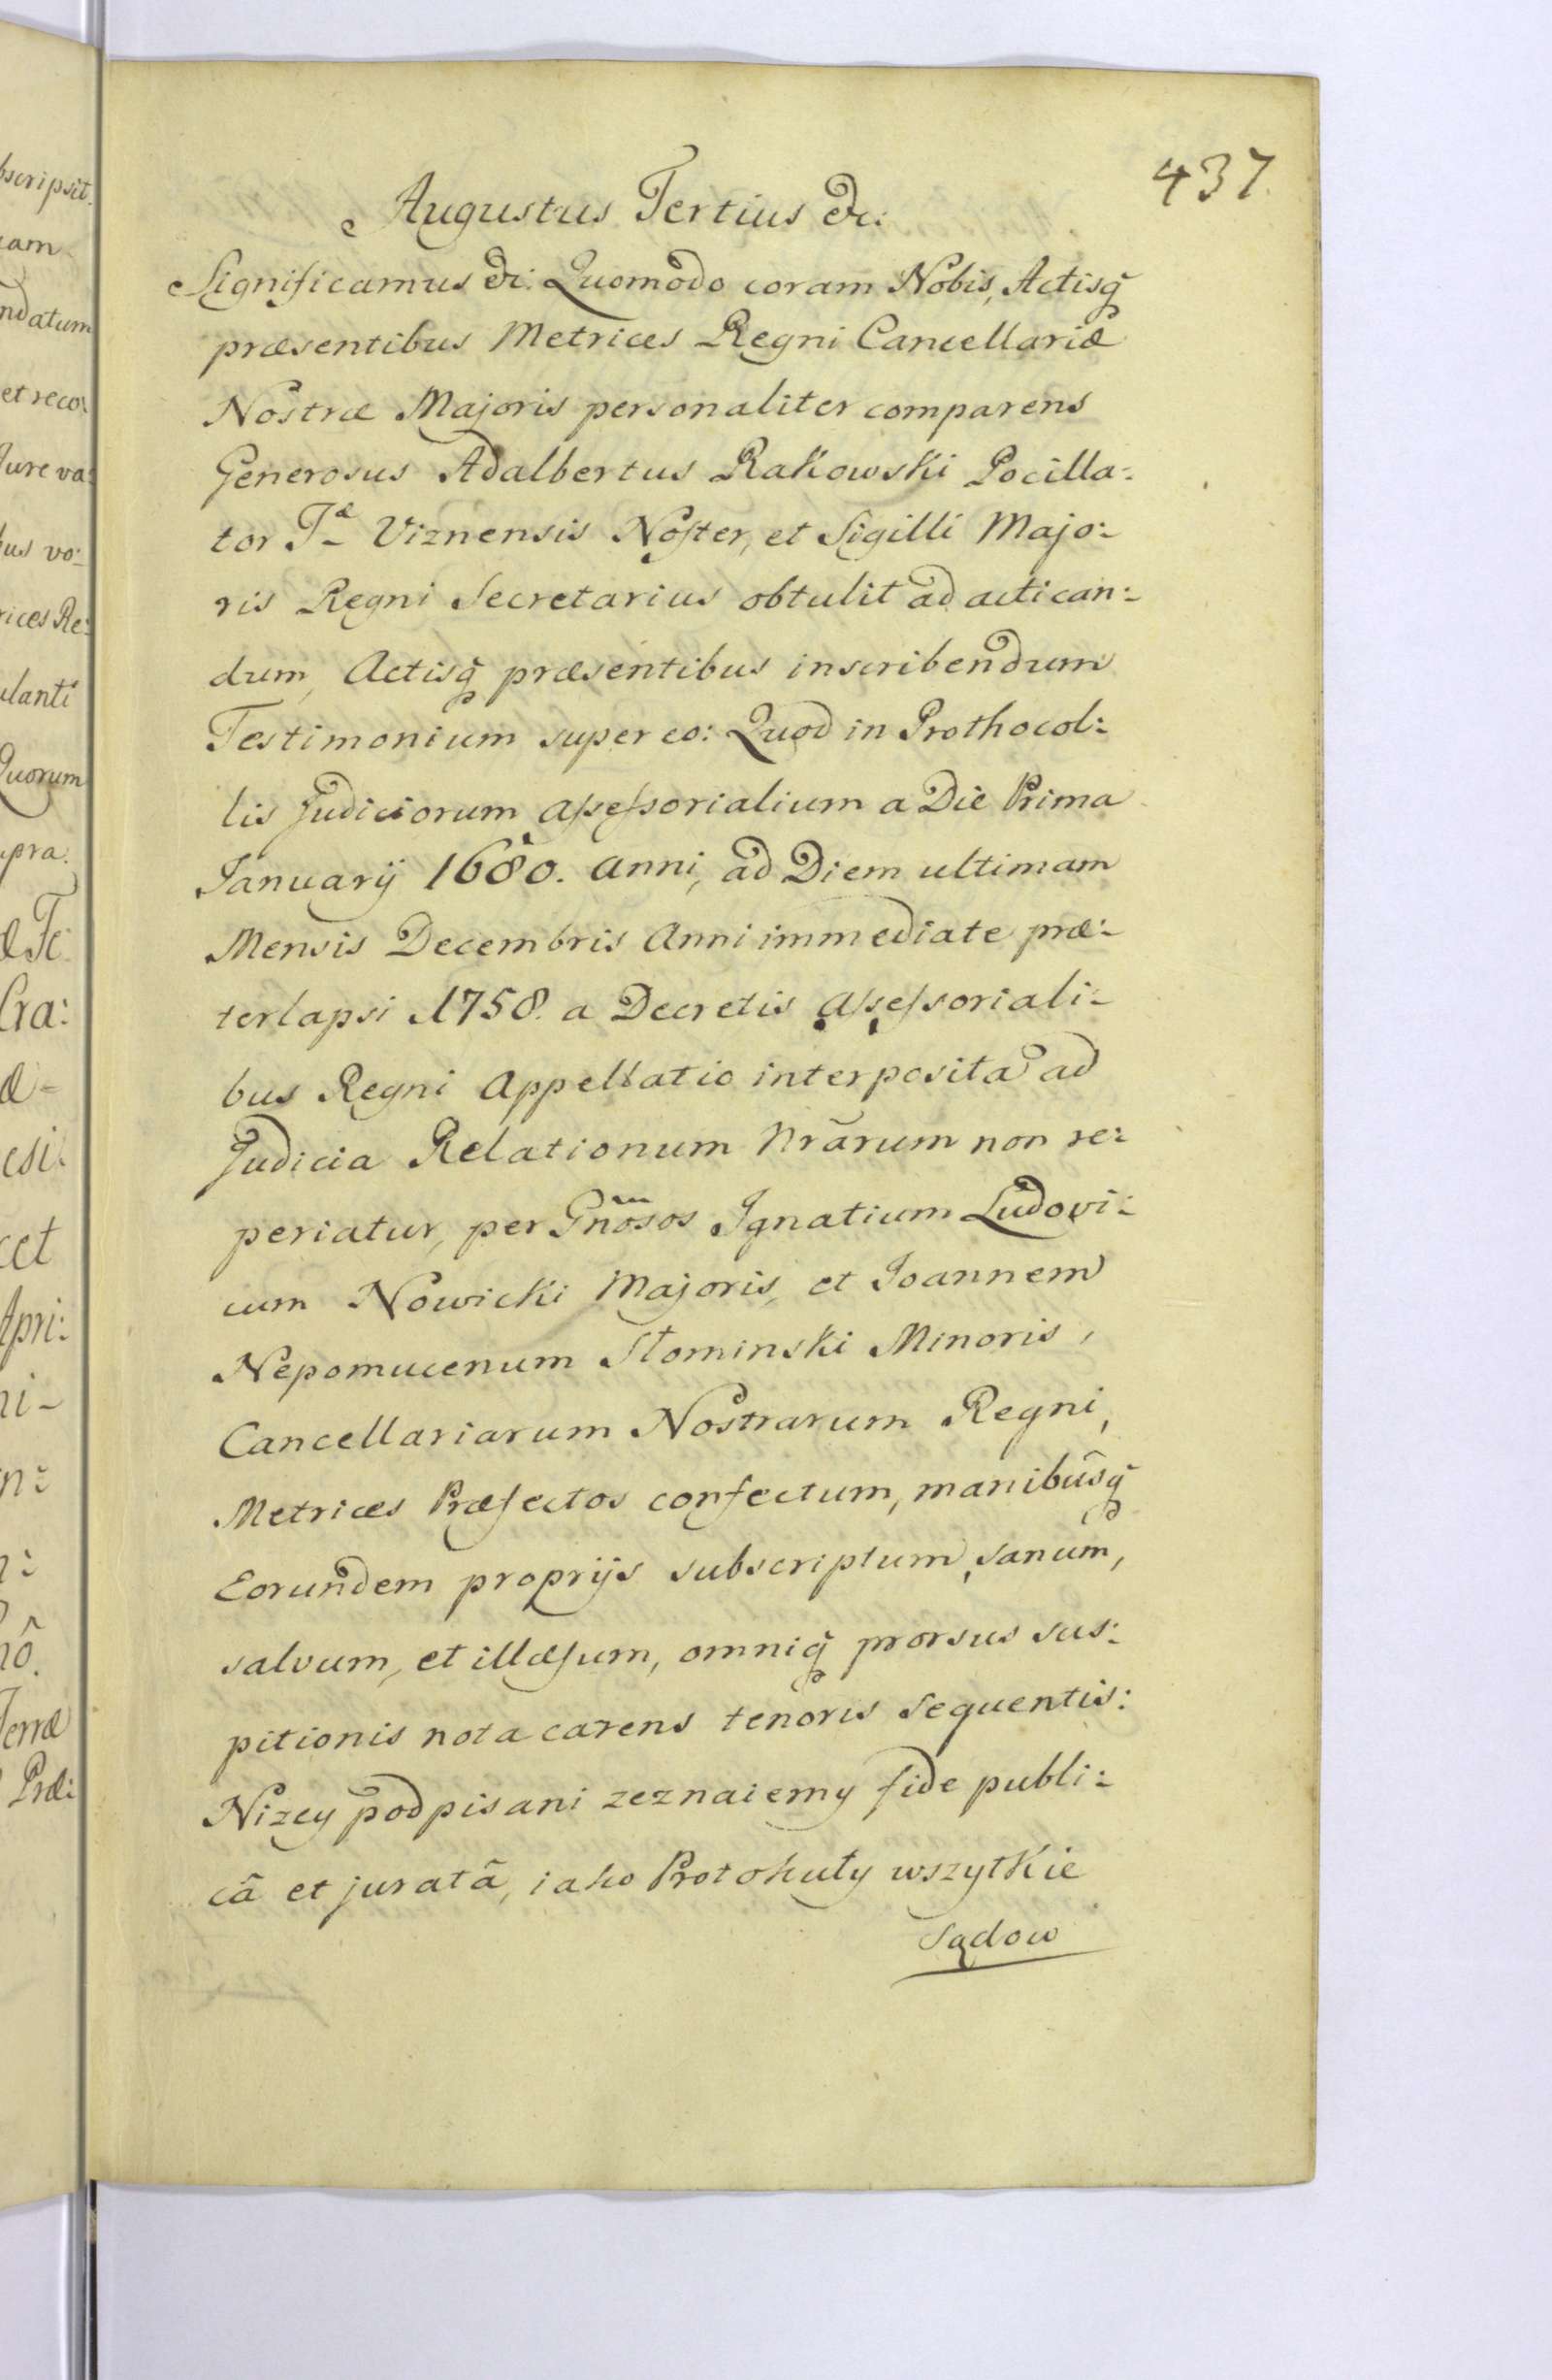 437.
Augustus Tertius &c:
Significamus &c: Quomodo coram Nobis, Actisq̃
præsentibus Metrices Regni Cancellariæ
Nostræ Majoris personaliter comparens
Generosus Adalbertus Rakowski Pocilla:
tor Tæ Viznensis Noster, et Sigilli Majo:
ris Regni Secretarius obtulit ad actican:
dum, Actisq̃ præsentibus inscribendum
Testimonium super eo: Quod in Prothocol:
lis Judiciorum Assessorialium a Die Prima
Januarij 1680. Anni, ad Diem ultimam
Mensis Decembris Anni immediate præ:
terlapsi 1758. a Decretis Assessoriali:
bus Regni Appellatio interposita ad
Judicia Relationum Nrãrum non re:
periatur, per Gñosos Ignatium Ludovi:
cum Nowicki Majoris, et Joannem
Nepomucenum Słominski Minoris,
Cancellariarum Nostrarum Regni,
Metrices Præfectos confectum, manibusq̃
Eorundem proprijs subscriptum, sanum,
salvum, et illæsum, omniq̃ prorsus sus:
pitionis nota carens tenoris sequentis:
Nizey podpisani zeznaiemy fide publi:
câ et juratâ, iako Protokuły wszytkie
Sądow
bscripsit.
ndatum
et reco:
Jure va:
bus vo:
rices Re:
ulanti
Quorum
upra.
Cra:
Apri:
Terræ
Præ: